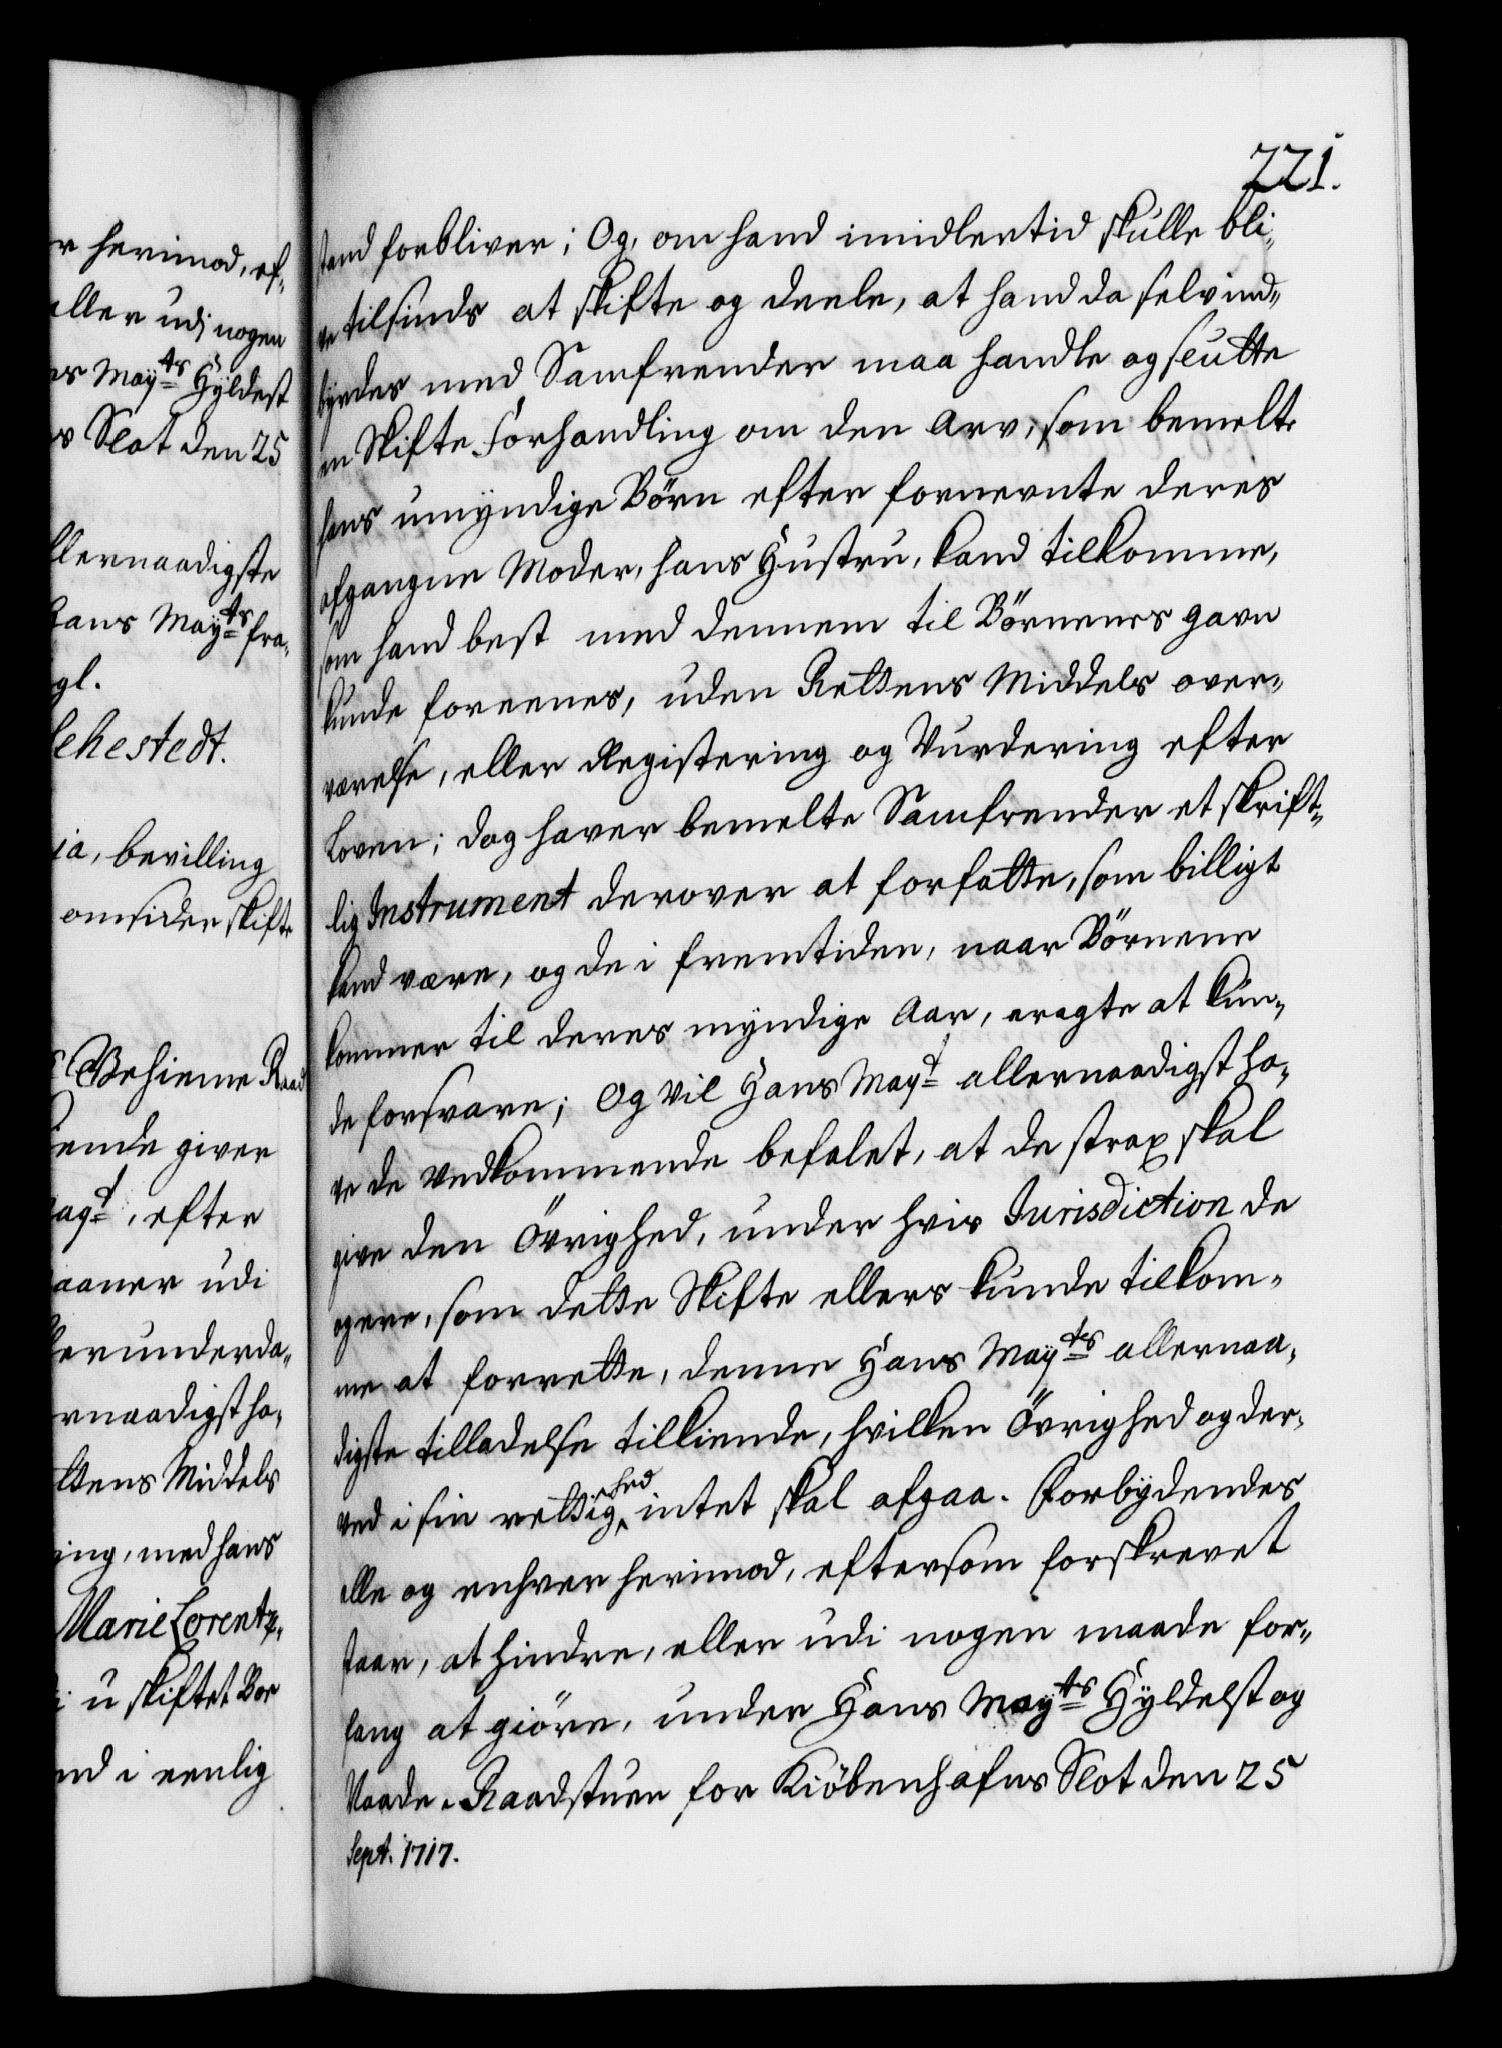 r herimod, ef-
eller udj nogen
ns Mayts Hyldest
s Slot den 25
llernaadigste
Hans Mayts fra-
gl.
lehestedt.
ja, bevilling
omsider skifte
Geheime Raad
iende giver
ayt, efter
aaner udi
lerunderda-
rnaadigst ha-
ttens Middels
ing, med hans
Marie Lorentz-
i uskiftet Boe
nd i eenlig
221.
stand forbliver; Og, om hand imidlertid skulle bli-
ve tilsinds at skifte og deele, at hand da selv ind-
byrdes med Samfrender maa handle og slutte
en Skifte Forhandling om den Arv, som bemelte
hans umyndige Børn efter fornevnte deres
afgangne Moder, hans Hustru, kand tilkomme,
som hand best med dennem til Børnenes gavn
kunde foreenes, uden Rettens Middels over-
værelse, eller Registering og Vurdering efter
Loven; dog haver bemelte Samfrender et skrift-
lig Instrument derover at forfatte, som billigt
kand være, og de i fremtiden, naar Børnene
kommer til deres myndige Aar, eragte at kun-
de forsvare; Og vil Hans Mayt allernaadigst ha-
ve de Vedkommende befalet, at de strax skal
give den Øvrighed, under hvis Jurisdiction de
ere, som dette Skifte ellers kunde tilkom-
me at forrette, denne Hans Mayts allernaa-
digste tilladelse tilkiende, hvilken Øvrighed og der-
ved i sin rettighed intet skal afgaa. Forbydendes
alle og enhver herimod, eftersom forskrevet
staar, at hindre, eller udi nogen maade for-
fang at giøre, under Hans Mayts Hyldest og
Naade. Raadstuen for Kiøbenhafns Slot den 25
Sept. 1717.